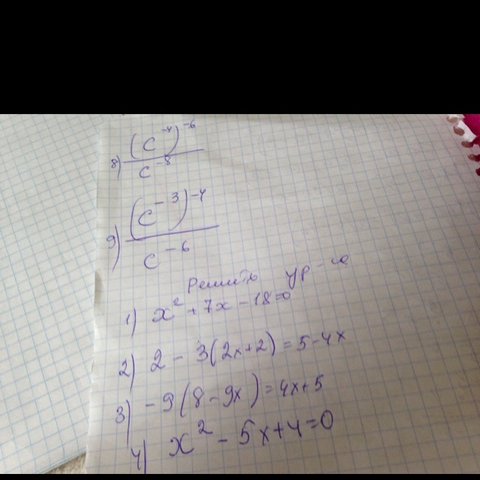 8) (c⁻⁴)⁻⁶
c⁻⁸
9) (c⁻³)⁻⁴
c⁻⁶
Решить ур-ю
1) x² + 7x - 18 = 0
2) 2 - 3(2x+2) = 5 - 4x
3) -9(8 - 9x) = 4x + 5
4) x² - 5x + 4 = 0